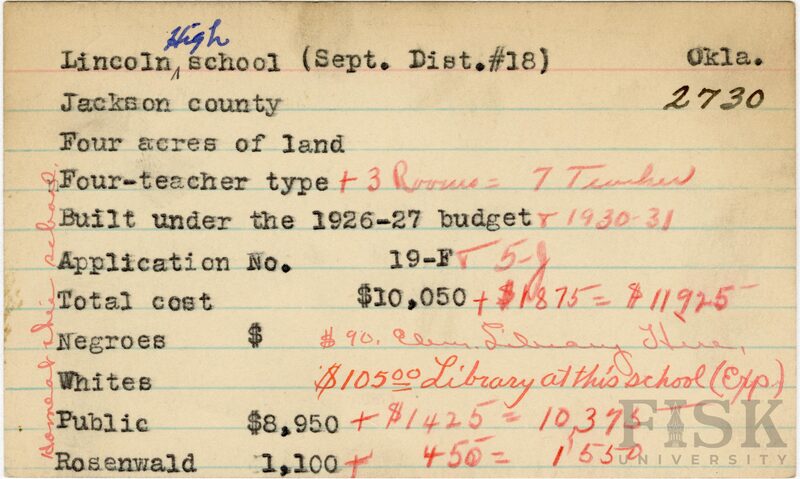 Lincoln High school (Sept. Dist.#18) Okla.
Jackson county 2730
Four acres of land
Four-teacher type + 3 Rooms = 7 Teacher
Built under the 1926-27 budget & 1930-31
Application No. 19-F & 5-J
Total cost $10,050 + $1875 = $11925
Negroes $ $90. Elem. Library Here.
Whites $105.00 Library at this school (Exp)
Public $8,950 + $1425 = 10,375
Rosenwald 1,100 + 450 = 1,550
this school
FISK
UNIVERSITY